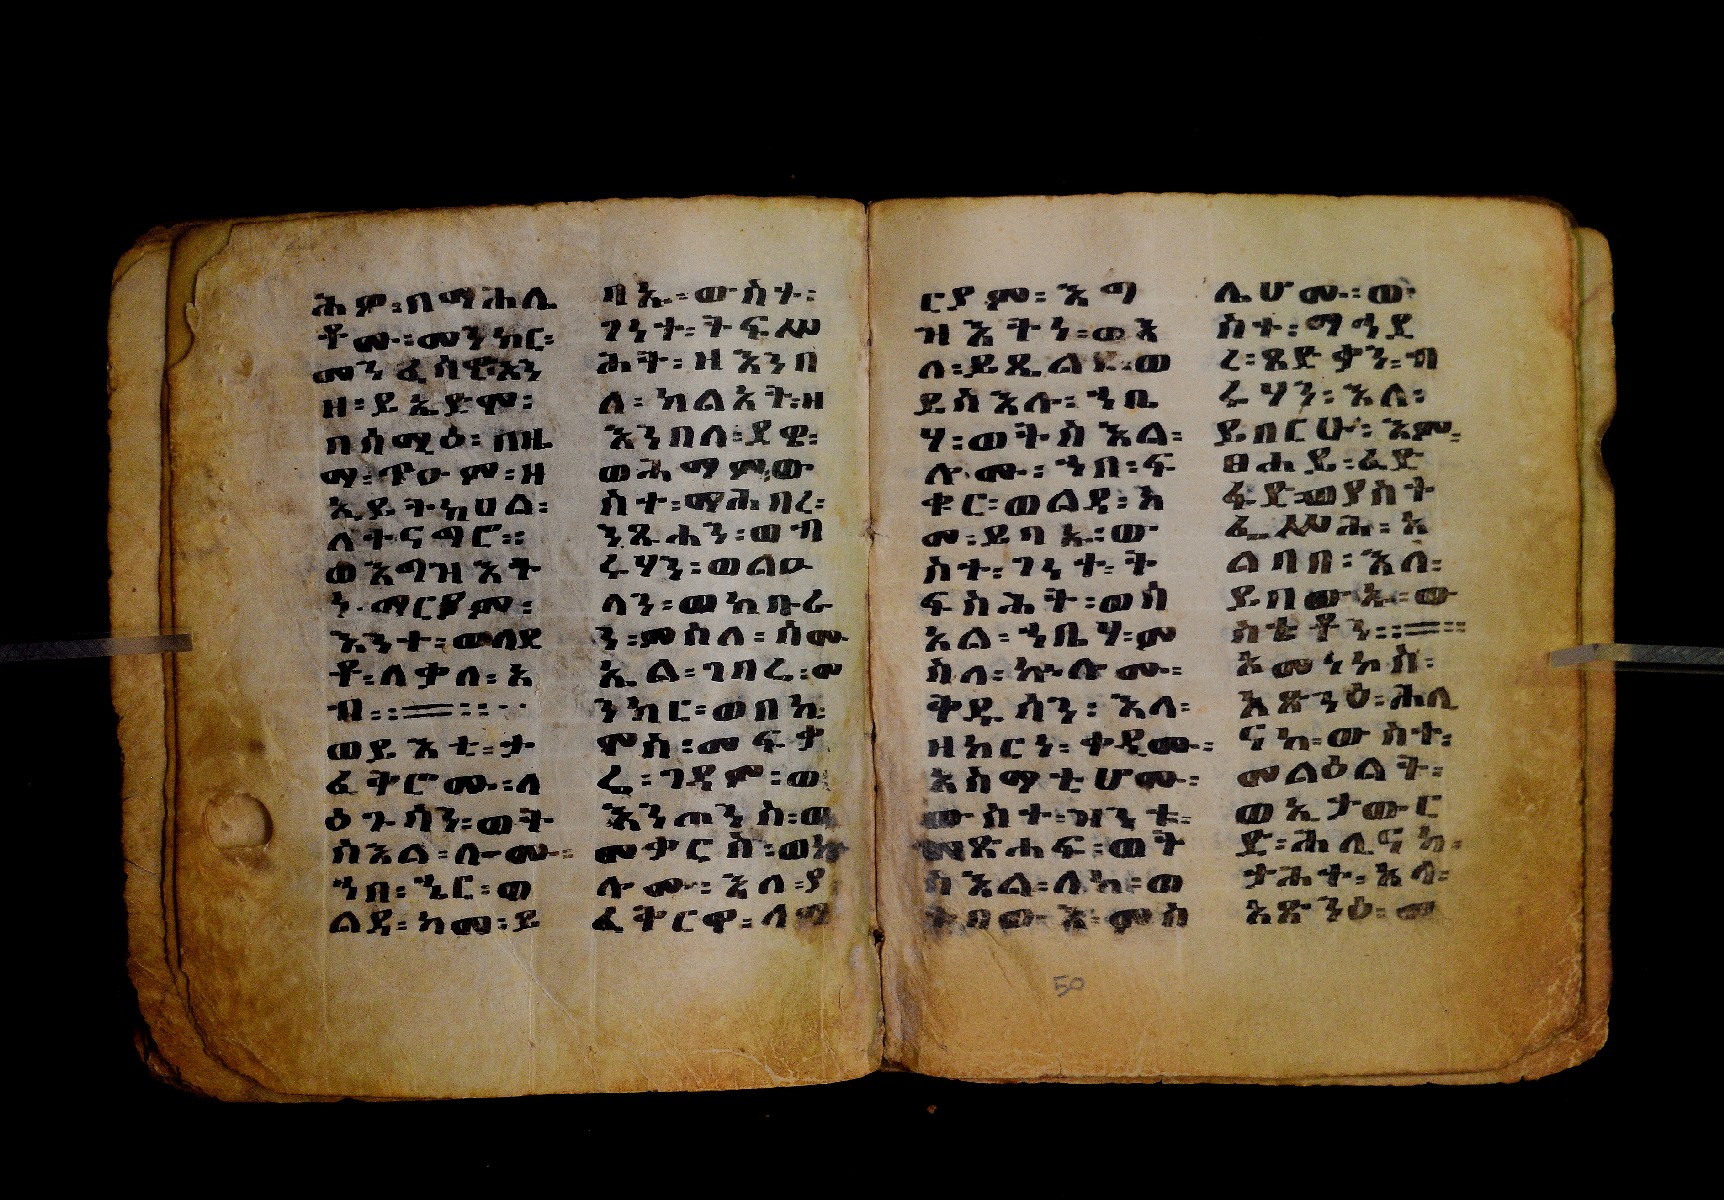 ሕም፡በማሕሌ
ቶሙ፡መንክር፡
መንፈሳዊ፡እን
ዘ፡ይኤድም፡
በሰሚዕ፡ጠዜ
ማ፡ጥዑም፡ዘ
ኢይትከሀል፡
ለተናግሮ፡፡
ወእግዝእት
ነ፡ማርያም፡
እንተ፡ወለደ
ቶ፡ለቃለ፡አ
ብ፡፡፡፡
ወይእቲ፡ታ
ፈትሮሙ፡ለ
ዕጉሳን፡ወት
ስእል፡ሎሙ፡
ኀበ፡ኄር፡ወ
ልዳ፡ከመ፡ይ
ባኡ፡ውስተ፡
ገነተ፡ትፍሥ
ሕት፡ዘእንበ
ለ፡ክልአት፡ዘ
እንበለ፡ደዌ፡
ወሕማም፡ው
ስተ፡ማሕበረ፡
ንጹሐን፡ወብ
ሩሃን፡ወልዑ
ላን፡ወክቡራ
ን፡ምስለ፡ሰመ
ኢል፡ገበሬ፡መ
ንክር፡ወበከ
ሞስ፡መፍታ
ሬ፡ገዳም፡ወ
እንጦንስ፡ወ
መቃርስ፡ወኵ
ሎሙ፡እለ፡ያ
ፈትርዋ፡ለማ
ርያም፡እግ
ዝእትነ፡ወእ
ለ፡ይጼልዩ፡ወ
ይስእሉ፡ኀቤ
ሃ፡ወትስእል፡
ሎሙ፡ኀበ፡ፍ
ቁር፡ወልዳ፡እ
መ፡ይባኡ፡ው
ስተ፡ገነተ፡ት
ፍስሕት፡ወስ
እል፡ኀቤሃ፡ም
ስለ፡ኵሎሙ፡
ቅዱሳን፡እለ፡
ዘከርነ፡ቀዲሙ፡
አስማቲሆሙ፡
ውስተ፡ዝንቱ፡
መጽሐፍ፡ወት
ስእል፡ለከ፡ወ
ትበውእ፡ምስ
ሌሆሙ፡ው
ስተ፡ማኅደ
ረ፡ጻድቃን፡ብ
ሩሃን፡እለ፡
ይበርሁ፡እም፡
ፀሐይ፡ፈድ
ፋድ፡ወያስት
ፌሥሕ፡አ
ልባበ፡እለ፡
ይበውኡ፡ው
ስቴቶን፡፡፡፡
እመነከስ፡
አጽንዕ፡ሕሊ
ናከ፡ውስተ፡
መልዕልት፡
ወኢታውር
ድ፡ሕሊናከ፡
ታሕተ፡አላ፡
አጽንዕ፡መ
50